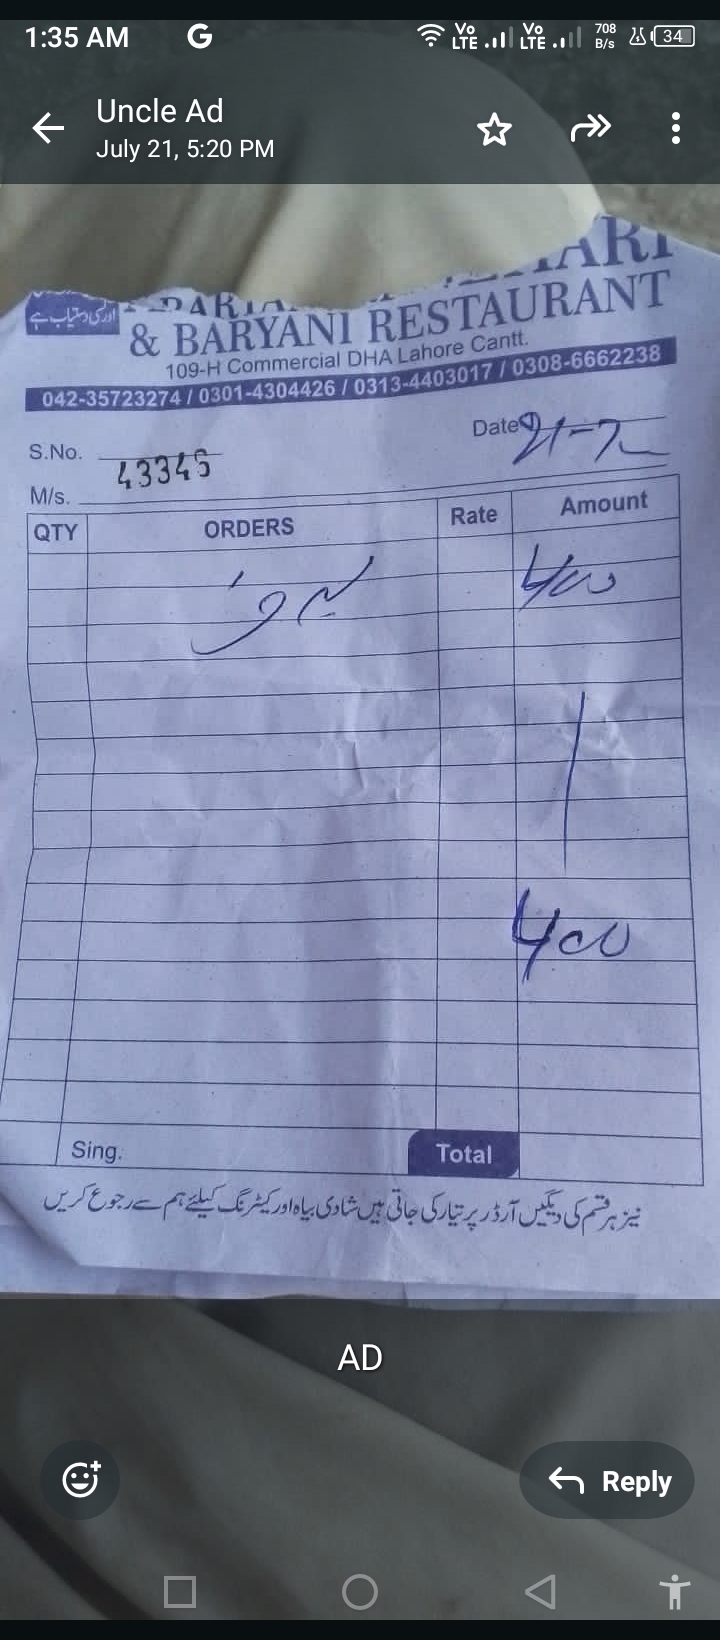 1:35 AM G Vo LTE Vo LTE 708 B/s 34
Uncle Ad
July 21, 5:20 PM
& BARYANI RESTAURANT
109-H Commercial DHA Lahore Cantt.
042-35723274 / 0301-4304426 / 0313-4403017 / 0308-6662238
S.No. 43345
Date 21-7
M/s.
QTY ORDERS Rate Amount
400
400
Sing. Total
نیز ہر قسم کی دیگیں آرڈر پر تیار کی جاتی ہیں شادی بیاہ اور کیٹرنگ کیلئے ہم سے رجوع کریں
AD
Reply